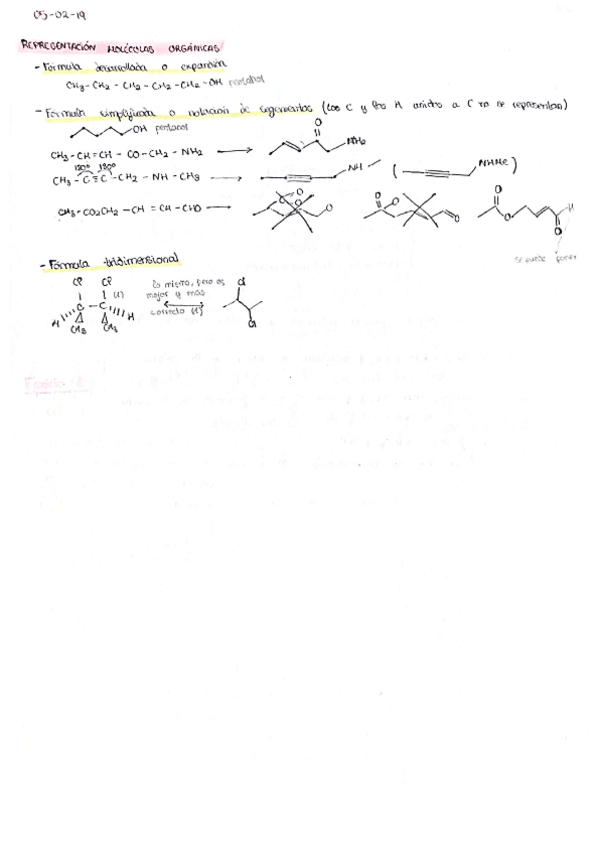 05-02-19
REPRESENTACIÓN MOLÉCULAS ORGÁNICAS
- Fórmula desarrollada o expansión
CH3-CH2-CH2-CH2-CH2-OH pentanol
- Fórmula simplificada o notación de segmentos (Los C y los H unidos a C no se representan)
OH pentanol
O
CH3-CH=CH-CO-CH2-NH2 → NH2
180° 180°
CH3-C≡C-CH2-NH-CH3 → NH ( NHMe )
CH3-CO2CH2-CH=CH-CHO → O O O O O O O H
se puede poner
- Fórmula tridimensional
Cl Cl lo mismo, pero es Cl
C-C (1) mejor y más
H H correcto (1)
CH3 CH3 Cl